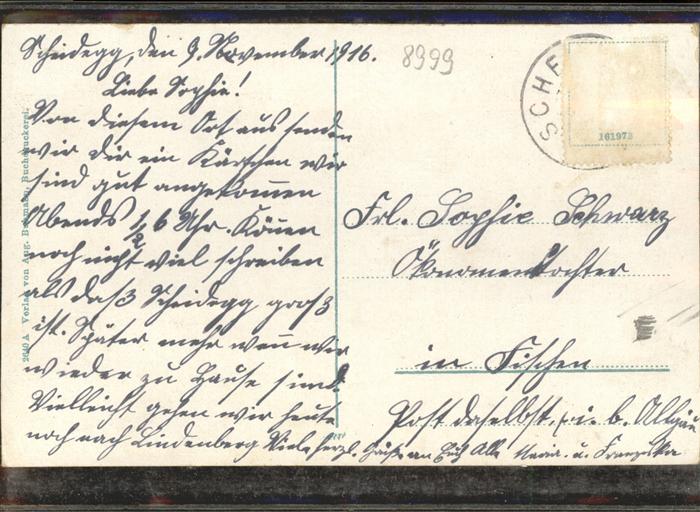 Scheidegg, den 9. November 1916.
Liebe Sophie!
Von diesem Ort aus senden
wir dir ein Kärtchen wir
sind gut angekommen
Abends 1/2 6 Uhr. Können
noch nicht viel schreiben
als daß Scheidegg groß
ist. Später mehr wenn wir
wieder zu Hause sind.
Vielleicht gehen wir heute
noch nach Lindenberg Viele herzl. Grüße an Euch Alle u. Franziska
8999
SCHE
161973
Frl. Sophie Schwarz
Ökonomenstochter
in Fischen
Post daselbst, i. b. Allgäu
2640 A Verlag von Aug. Buchdruckerei.